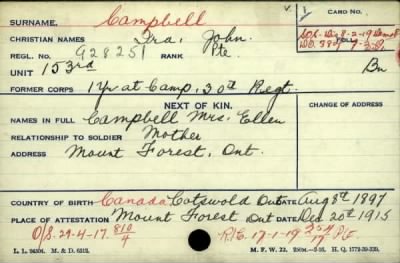 SURNAME. Campbell
CARD NO.
CHRISTIAN NAMES Ira, John.
REGL. NO. 928251 RANK Pte.
FOLL.
UNIT 153rd Bn
FORMER CORPS 1 yr at Camp, 30th Regt.
NEXT OF KIN.
CHANGE OF ADDRESS
NAMES IN FULL Campbell Mrs. Ellen
RELATIONSHIP TO SOLDIER Mother
ADDRESS Mount Forest, Ont.
COUNTRY OF BIRTH Canada Cotswold Ont DATE Aug 8th 1897
PLACE OF ATTESTATION Mount Forest Ont DATE Dec 20th 1915
O/S. 29-4-17. 810/4 R/C. 17-1-19 254/17 Pte
L. L. 94501. M. & D. 6512. M. F. W. 22. H. Q. 1772-39-339.